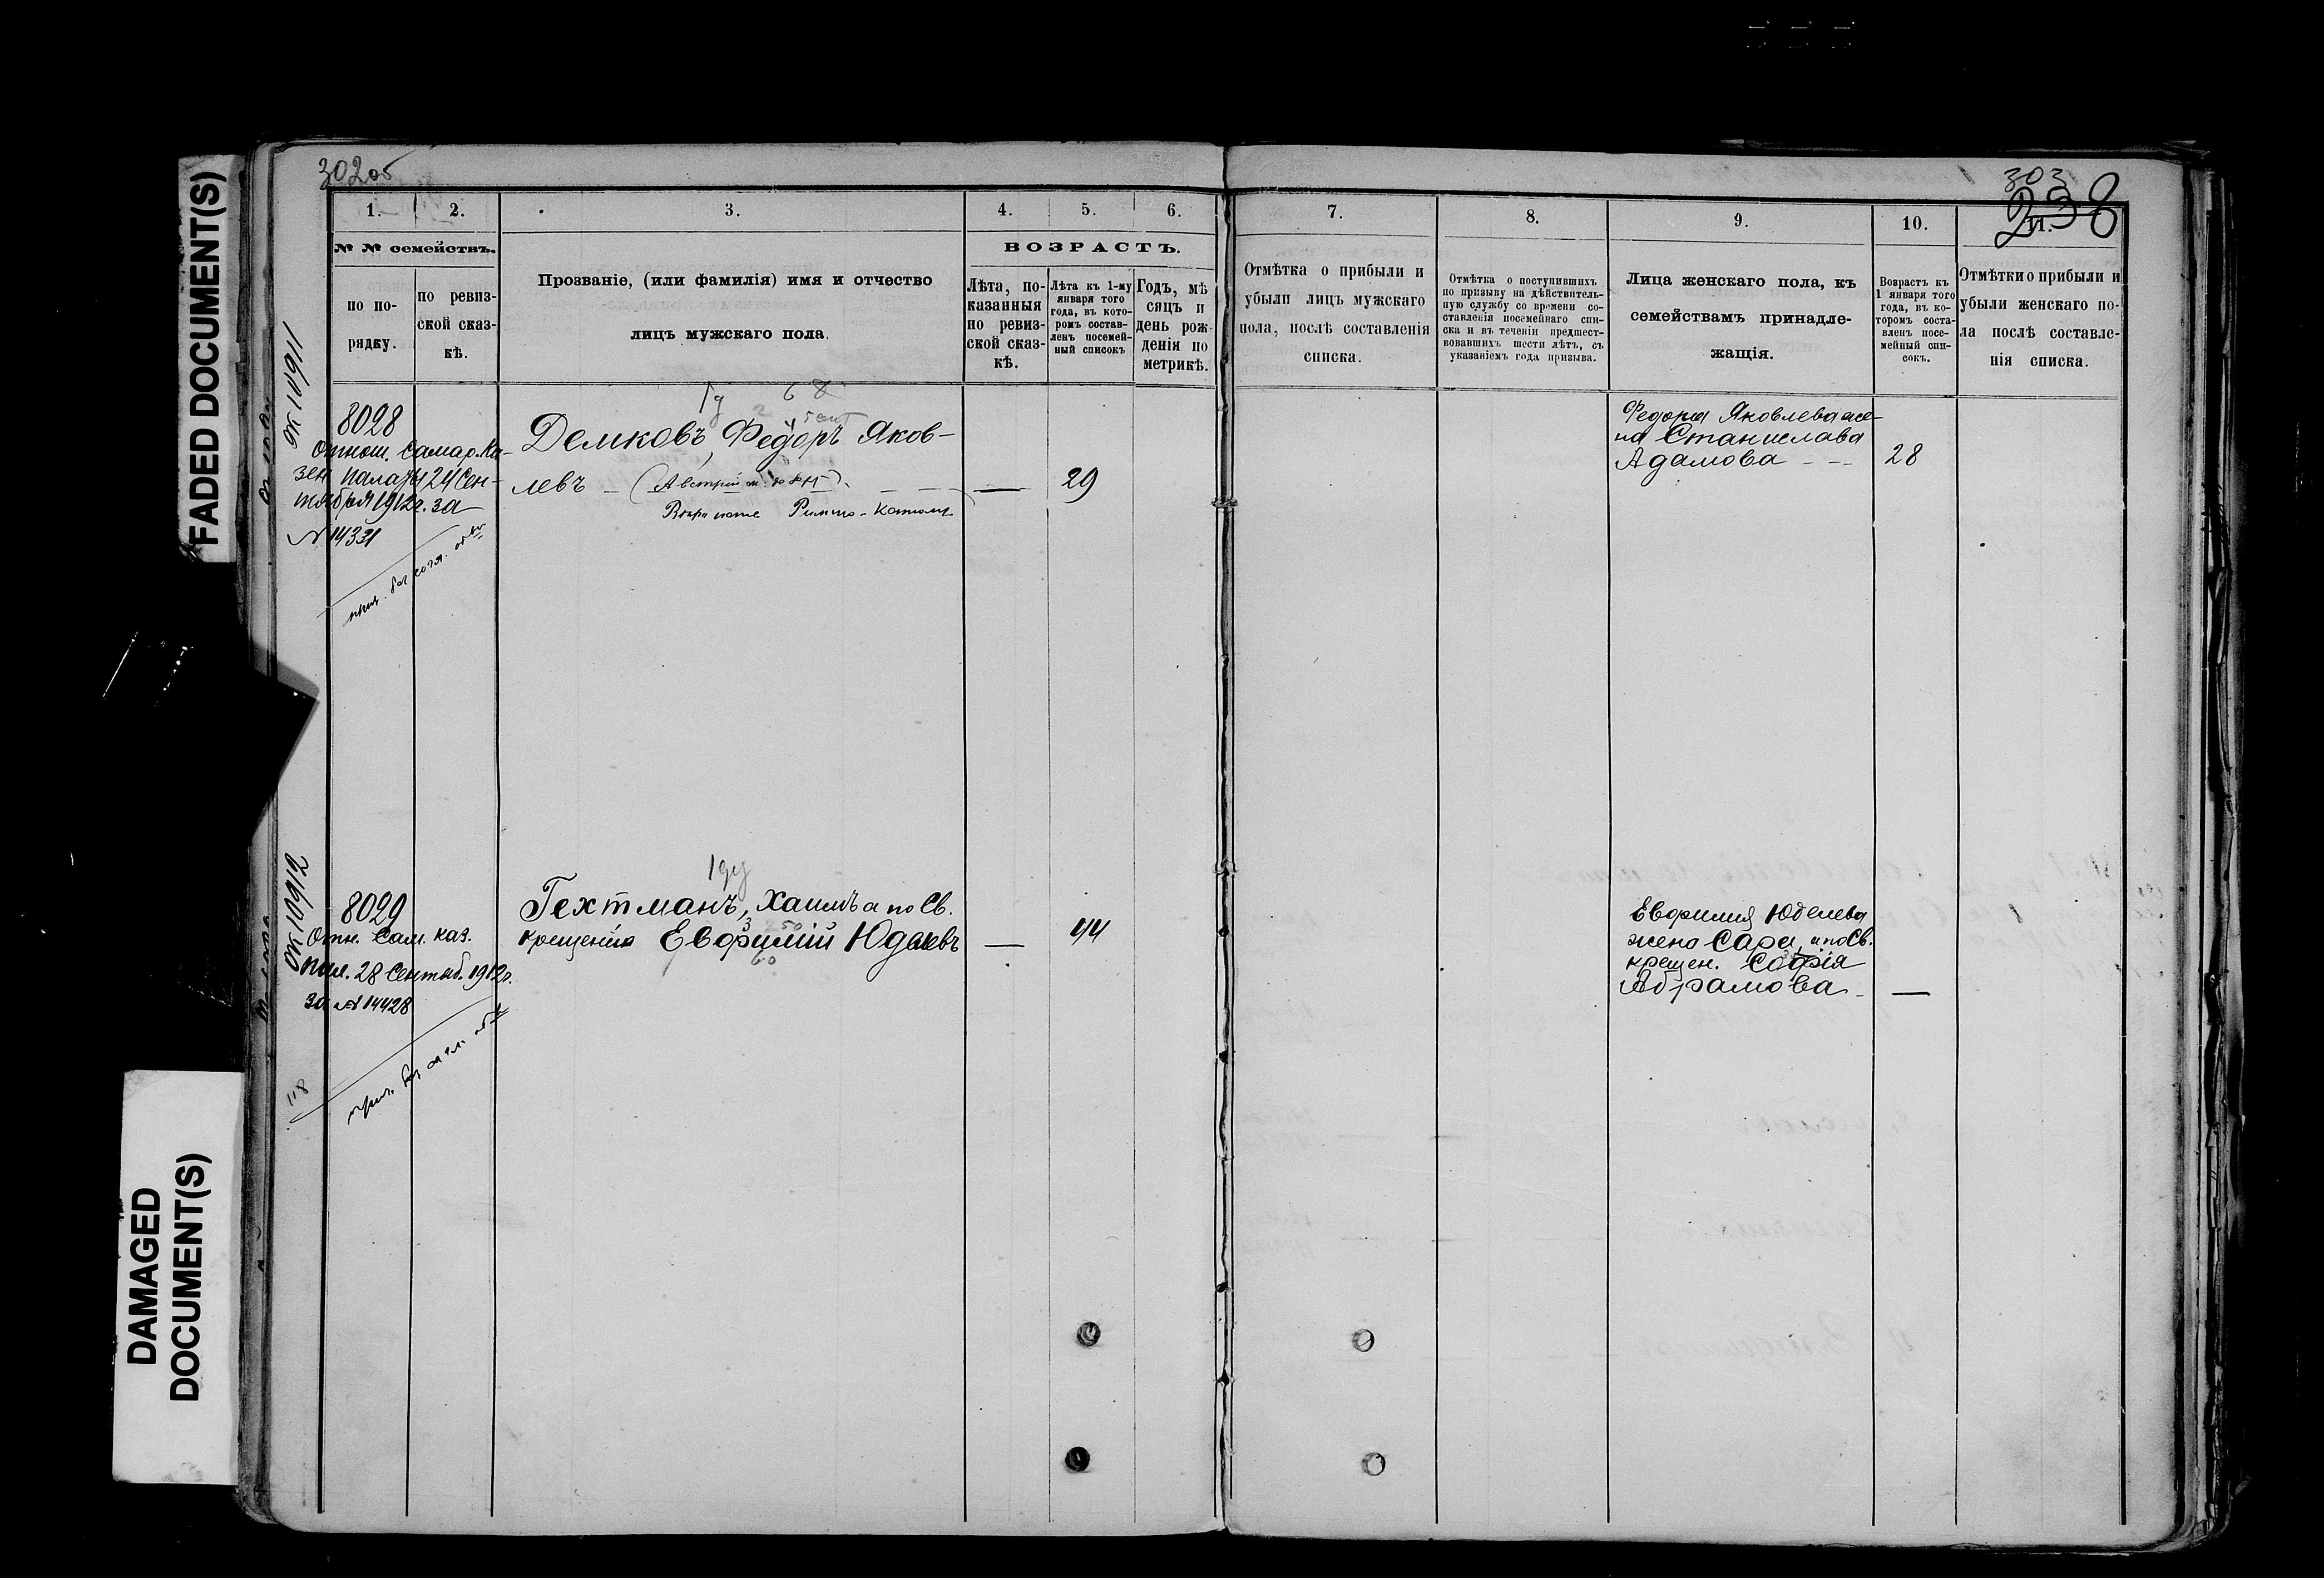 FADED DOCUMENT(S)
DAMAGED
DOCUMENT(S)
302об
303
238
1.
2.
3.
4.
5.
6.
№ № семействъ.
ВОЗРАСТЪ.
по по-
рядку.
по ревиз-
ской сказ-
кѣ.
Прозваніе, (или фамилія) имя и отчество
лицъ мужскаго пола.
Лѣта, по-
казанныя
по ревиз-
ской сказ-
кѣ.
Лѣта къ 1-му
января того
года, въ кото-
ромъ состав-
ленъ посемей-
ный списокъ
Годъ, мѣ
сяцъ и
день рож-
денія по
метрикѣ.
7.
8.
9.
10.
11.
Отмѣтка о прибыли и
убыли лицъ мужскаго
пола, послѣ составленія
списка.
Отмѣтка о поступившихъ
по призыву на дѣйствитель-
ную службу со времени со-
ставленія посемейнаго спи-
ска и въ теченіи предшест-
вовавшихъ шести лѣтъ, съ
указаніемъ года призыва.
Лица женскаго пола, къ
семействамъ принадле-
жащія.
Возрастъ къ
1 января того
года, въ ко-
торомъ соста-
вленъ посе-
мейный спи-
сокъ.
Отмѣтки о прибыли и
убыли женскаго по-
ла послѣ составле-
нія списка.
ок 10911
8028
Отнош. Самар. Ка-
зен. палаты 24 Сен-
тября 1912г. за
№ 14331
Демковъ, Федоръ Яков-
левъ
29
Римско-Катол
Федора Яковлева же-
на Станислава
Адамова
28
ок 10912
8029
Отн. Сам. каз.
пал. 28 Сентяб. 1912г.
за № 14428
118
Гехтманъ, Хаимъ а по Св.
крещенію Евфимій Юделевъ
44
Евфимия Юделева
жена Сара, а по Св.
крещен. Софія
Абрамова